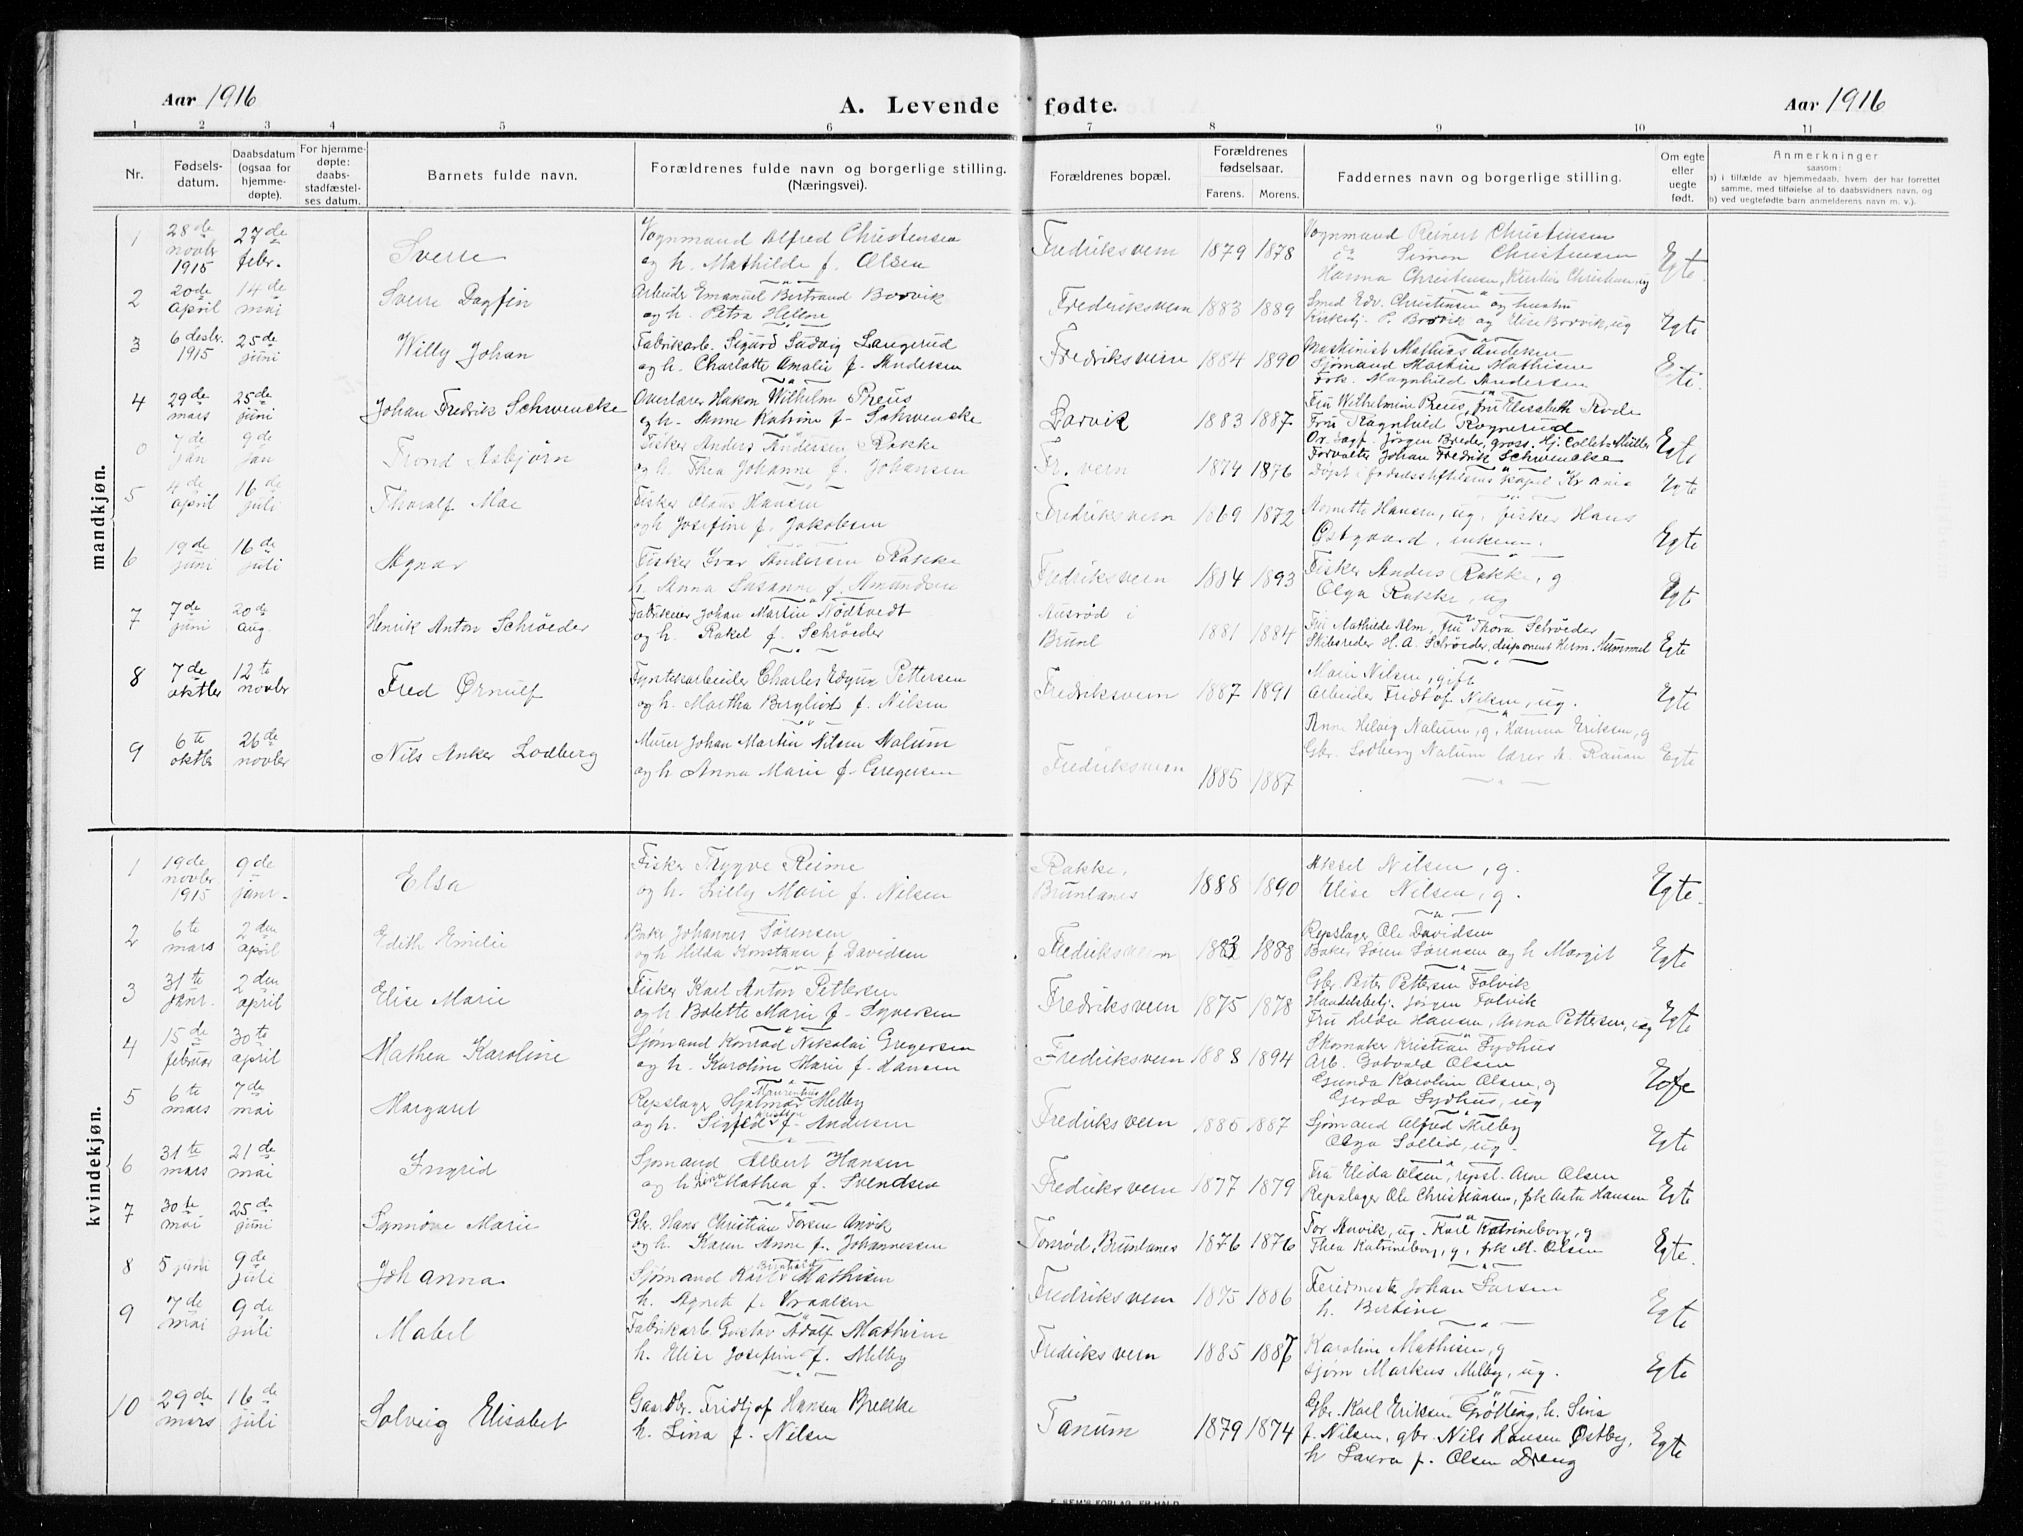 Aar 1916
A. Levende fødte.
Aar 1916
1 2 3 4 5 6 7 8 9 10 11
Nr.
Fødselsdatum.
Daabsdatum (ogsaa for hjemmedøpte).
For hjemmedøpte: daabsstadfæstelses datum.
Barnets fulde navn.
Forældrenes fulde navn og borgerlige stilling. (Næringsvei).
Forældrenes bopæl.
Forældrenes fødselsaar.
Farens. Morens.
Faddernes navn og borgerlige stilling.
Om egte eller uegte født.
Anmerkninger
saasom:
a) i tilfælde av hjemmedaab, hvem der har forrettet samme, med tilføielse af to daabsvidners navn, og
b) ved uegtefødte barn anmelderens navn m. v.).
mandkjøn.
1 28de novbr 1915 27de febr. Sverre Vognmand Alfred Christensen Fredriksvern 1879 1878 Vognmand Reinert Christensen Egte
og h. Mathilde f. Olsen do Simon Christensen
Hanna Christensen, Kirstin Christensen, ug
2 20de april 14de mai Sverre Dagfin Arbeider Emanuel Bertrand Borvik Fredriksvern 1883 1889 Smed Edv. Christensen og hustru Egte
og h. Petra Hellene Kirketj. P. Borvik og Elise Borvik, ug
3 6 desbr. 1915 25de juni Willy Johan Fabrikarb. Sigurd Ludvig Langerud Fredriksvern 1884 1890 Maskinist Mathias Andersen Egte
og h. Charlotte Amalie f. Andersen Sjømand Martin Mathisen
Frk. Magnhild Andersen
4 29de mars 25de juni Johan Fredrik Schwencke Overlærer Hakon Wilhelm Preus Larvik 1883 1887 Fru Wilhelmine Preus, fru Elisabeth Rode Egte
og h. Anne Katrine f. Schwencke Fru Ragnhild Rognerud
Or. sagf. Jørgen Breder, gross. Hj. Collet-Müller
Forvalter Johan Fredrik Schwencke
0 7de jan 9de jan Trond Asbjørn Fisker Anders Andersen Rakke Fr. vern 1874 1876 Døpt i fødselsstiftelsens kapel Kr.ania Egte
og h Thea Johanne f. Johansen
5 4de april 16de juli Thoralf Mae Fisker Olaus Hansen Fredriksvern 1869 1872 Annette Hansen, ug, fisker Hans Egte
og h Josefine f. Jakobsen Østgaard, enkem.
6 19de juni 16de juli Agnar Fisker Ivar Andersen Rakke Fredriksvern 1884 1893 Fisker Anders Rakke, g Egte
h. Anna Susanne f. Amundsen Olga Rakke, ug
7 7de juni 20de aug. Henrik Anton Schrøder Fabrikeier Johan Martin Nødtvedt Ausrød i Brunl 1881 1884 Fru Mathilde Alm, fru Thora Schrøder Egte
og h. Rakel f. Schrøder Skibsreder H. A. Schrøder, disponent Herm. Hummel
8 7de oktbr 12te novbr Fred Ørnulf Fyrstekarbeider Charles Edgur Pettersen Fredriksvern 1887 1891 Marie Nilsen, gift Egte
og h. Martha Bergliot f. Nilsen Arbeider Fridtjof Nilsen, ug.
9 6te oktbr 26de novbr Nils Anker Lodberg Murer Johan Martin Nilsen Nalum Fredriksvern 1885 1887 Anne Helvig Nalum, g, Hanna Eriksen, g Egte
og h Anna Marie f. Gregersen Gbr. Lodberg Nalum lærer A. Rauan
kvindekjøn.
1 19de novbr. 1915 9de janr. Elsa Fisker Trygve Reime Rakke, Brunlanes 1888 1890 Aksel Nilsen, g. Egte
og h. Lilly Marie f. Nilsen Elise Nilsen, g.
2 6te mars 2den april Edith Emilie Baker Johannes Sørensen Fredriksvern 1883 1888 Repslager Ole Davidsen Egte
og h Hilda Konstanse f Davidsen Baker Søren Sørensen og h Margit
3 31te janr. 2den april Elise Marie Fisker Karl Anton Pettersen Fredriksvern 1875 1878 Gbr. Peter Pettersen Folvik Egte
og h Bolette Marie f. Syversen Handelsbetj. Jørgen Folvik
Fru Hilda Hansen, Anna Pettersen, ug
4 15de februar 30te april Mathea Karoline Sjømand Konrad Nikolai Gregersen Fredriksvern 1888 1894 Skomaker Kristian Sydhus Egte
og h. Karoline Marie f. Hansen Arb. Gotvald Olsen
Gunda Karoline Olsen, g
Gerda Sydhus, ug
5 6te mars 7de mai Margaret Repslager Hjalmar Maurentius Melby Fredriksvern 1885 1887 Sjømand Alfred Melby Egte
og h. Sigfrid Kristine f. Andersen Olga Sollid, ug.
6 31te mars 21de mai Ingrid Sjømand Albert Hansen Fredriksvern 1877 1879 Fru Elida Olsen, repsl. Arne Olsen Egte
og h Lina Mathea f. Svendsen Repslager Ole Christiansen, frk Asta Hansen
7 30te mai 25de juni Synnøve Marie Gbr. Hans Christian Torsen Anvik Torsrød, Brunlanes 1876 1876 Tor Anvik, ug. Karl Katrineborg, g Egte
og h. Karen Anne f. Johannessen Thea Katrineborg, g, frk M. Olsen
8 5 juni 9de juli Johanna Sjømand Karl Bernhard Mathisen Fredriksvern 1875 1886 Feiermester Johan Larsen Egte
h. Agnete f. Vraalsen h. Bertine
9 7de mai 9de juli Mabel Fabrikarb. Gustav Adolf Mathisen Fredriksvern 1885 1887 Karoline Mathisen, g Egte
h. Elise Josefine f. Melby sjøm Markus Melby, ug.
10 29de mars 16de juli Solveig Elisabet Gaardbr. Fridtjof Hansen Brekke Tanum 1879 1874 Gbr. Karl Eriksen Grøtting, h. Sina Egte
h. Lina f. Nilsen f. Nilsen, gbr. Nils Hansen Østby,
h Laura f. Olsen Dreng
E. SEM'S FORLAG, FR.HALD